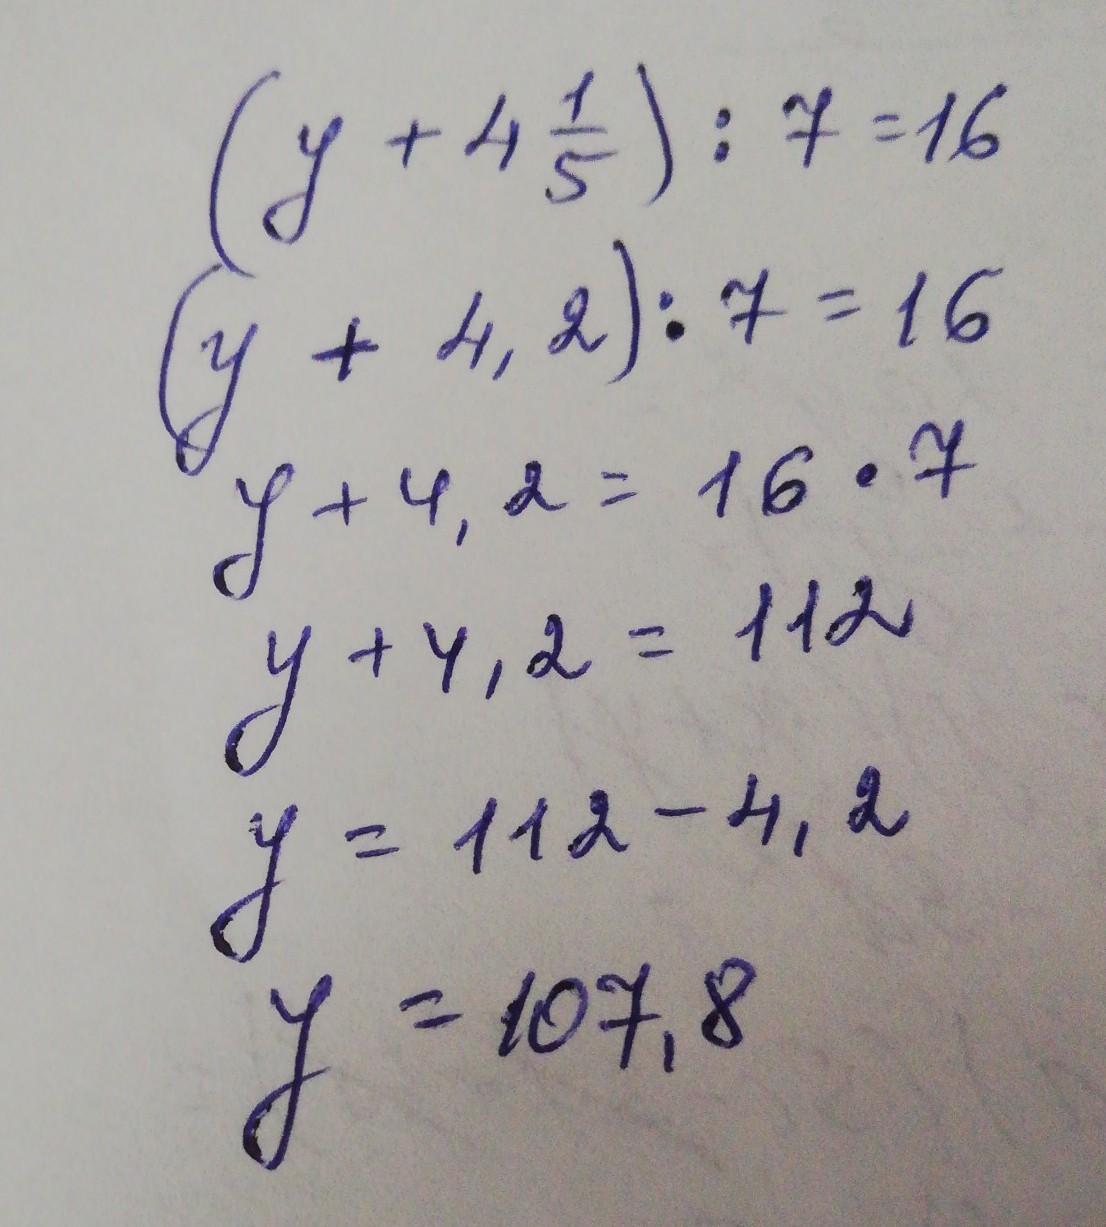 (y + 4 1/5) : 7 = 16
(y + 4,2) : 7 = 16
y + 4,2 = 16 · 7
y + 4,2 = 112
y = 112 - 4,2
y = 107,8